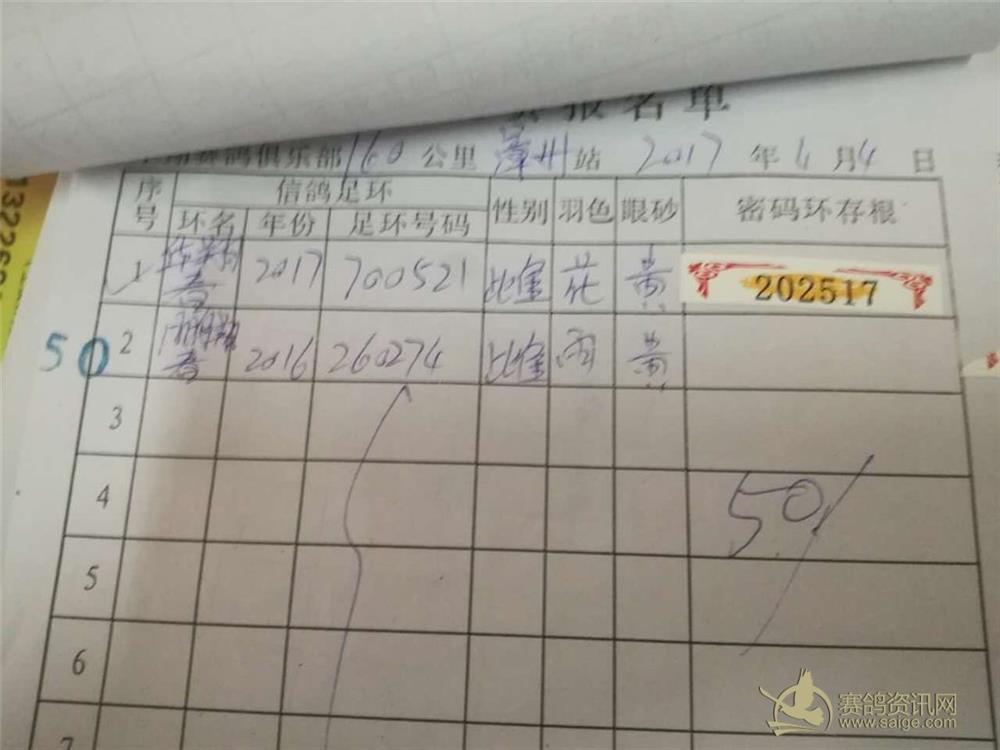 报名单
赛鸽俱乐部160公里漳州站 2017年4月4日
序号 信鸽足环 性别 羽色 眼砂 密码环存根
环名 年份 足环号码
1 2017 700521 花 黄 202517
50 2 2016 260274 雨 黄
3
4 50/
5
6
7
赛鸽资讯网
www.saige.com